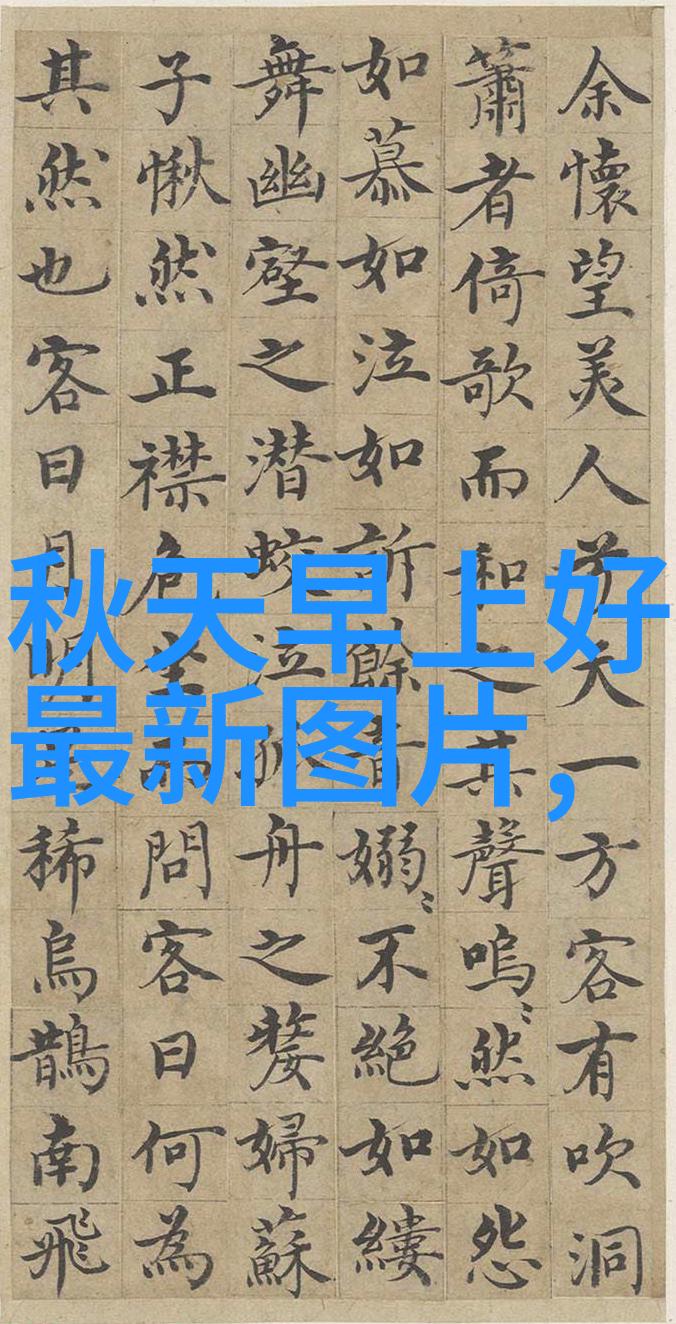 余懷望美人兮天一方客有吹洞
簫者倚歌而和之其聲嗚〻然如怨
如慕如泣如訴餘音嫋〻不絕如縷
舞幽壑之潛蛟泣孤舟之嫠婦蘇
子愀然正襟危坐而問客曰何為
其然也客曰月明星稀烏鵲南飛
秋天早上好
最新图片,